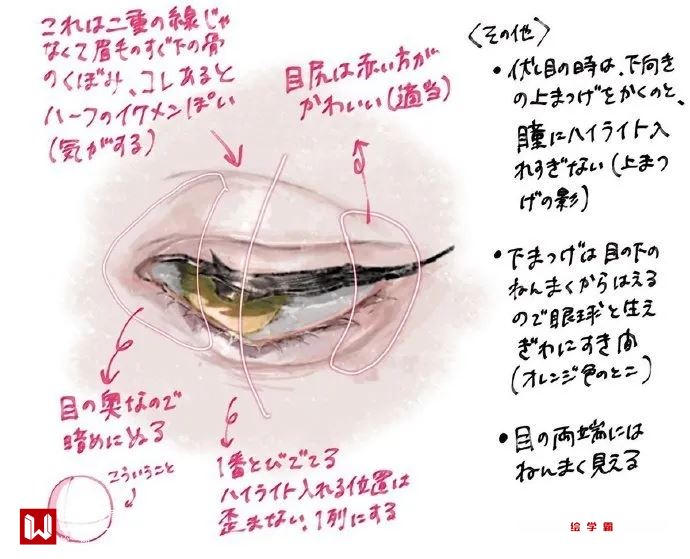 これは二重の線じゃ
なくて眉毛のすぐ下の骨
のくぼみ、コレあると
ハーフのイケメンぽい
(気がする)
目尻は赤い方が
かわいい(適当)
目の奥なので
暗めにぬる
こういうこと
1番とびでてる
ハイライト入れる位置は
歪まない、1列にする
<その他>
•伏し目の時は、下向き
の上まつげをかくのと、
瞳にハイライト入
れすぎない(上まつ
げの影)
•下まつげは目の下の
ねんまくからはえる
ので眼球と生え
ぎわにすき間
(オレンジ色のとこ)
•目の両端には
ねんまく見える
W
绘学霸